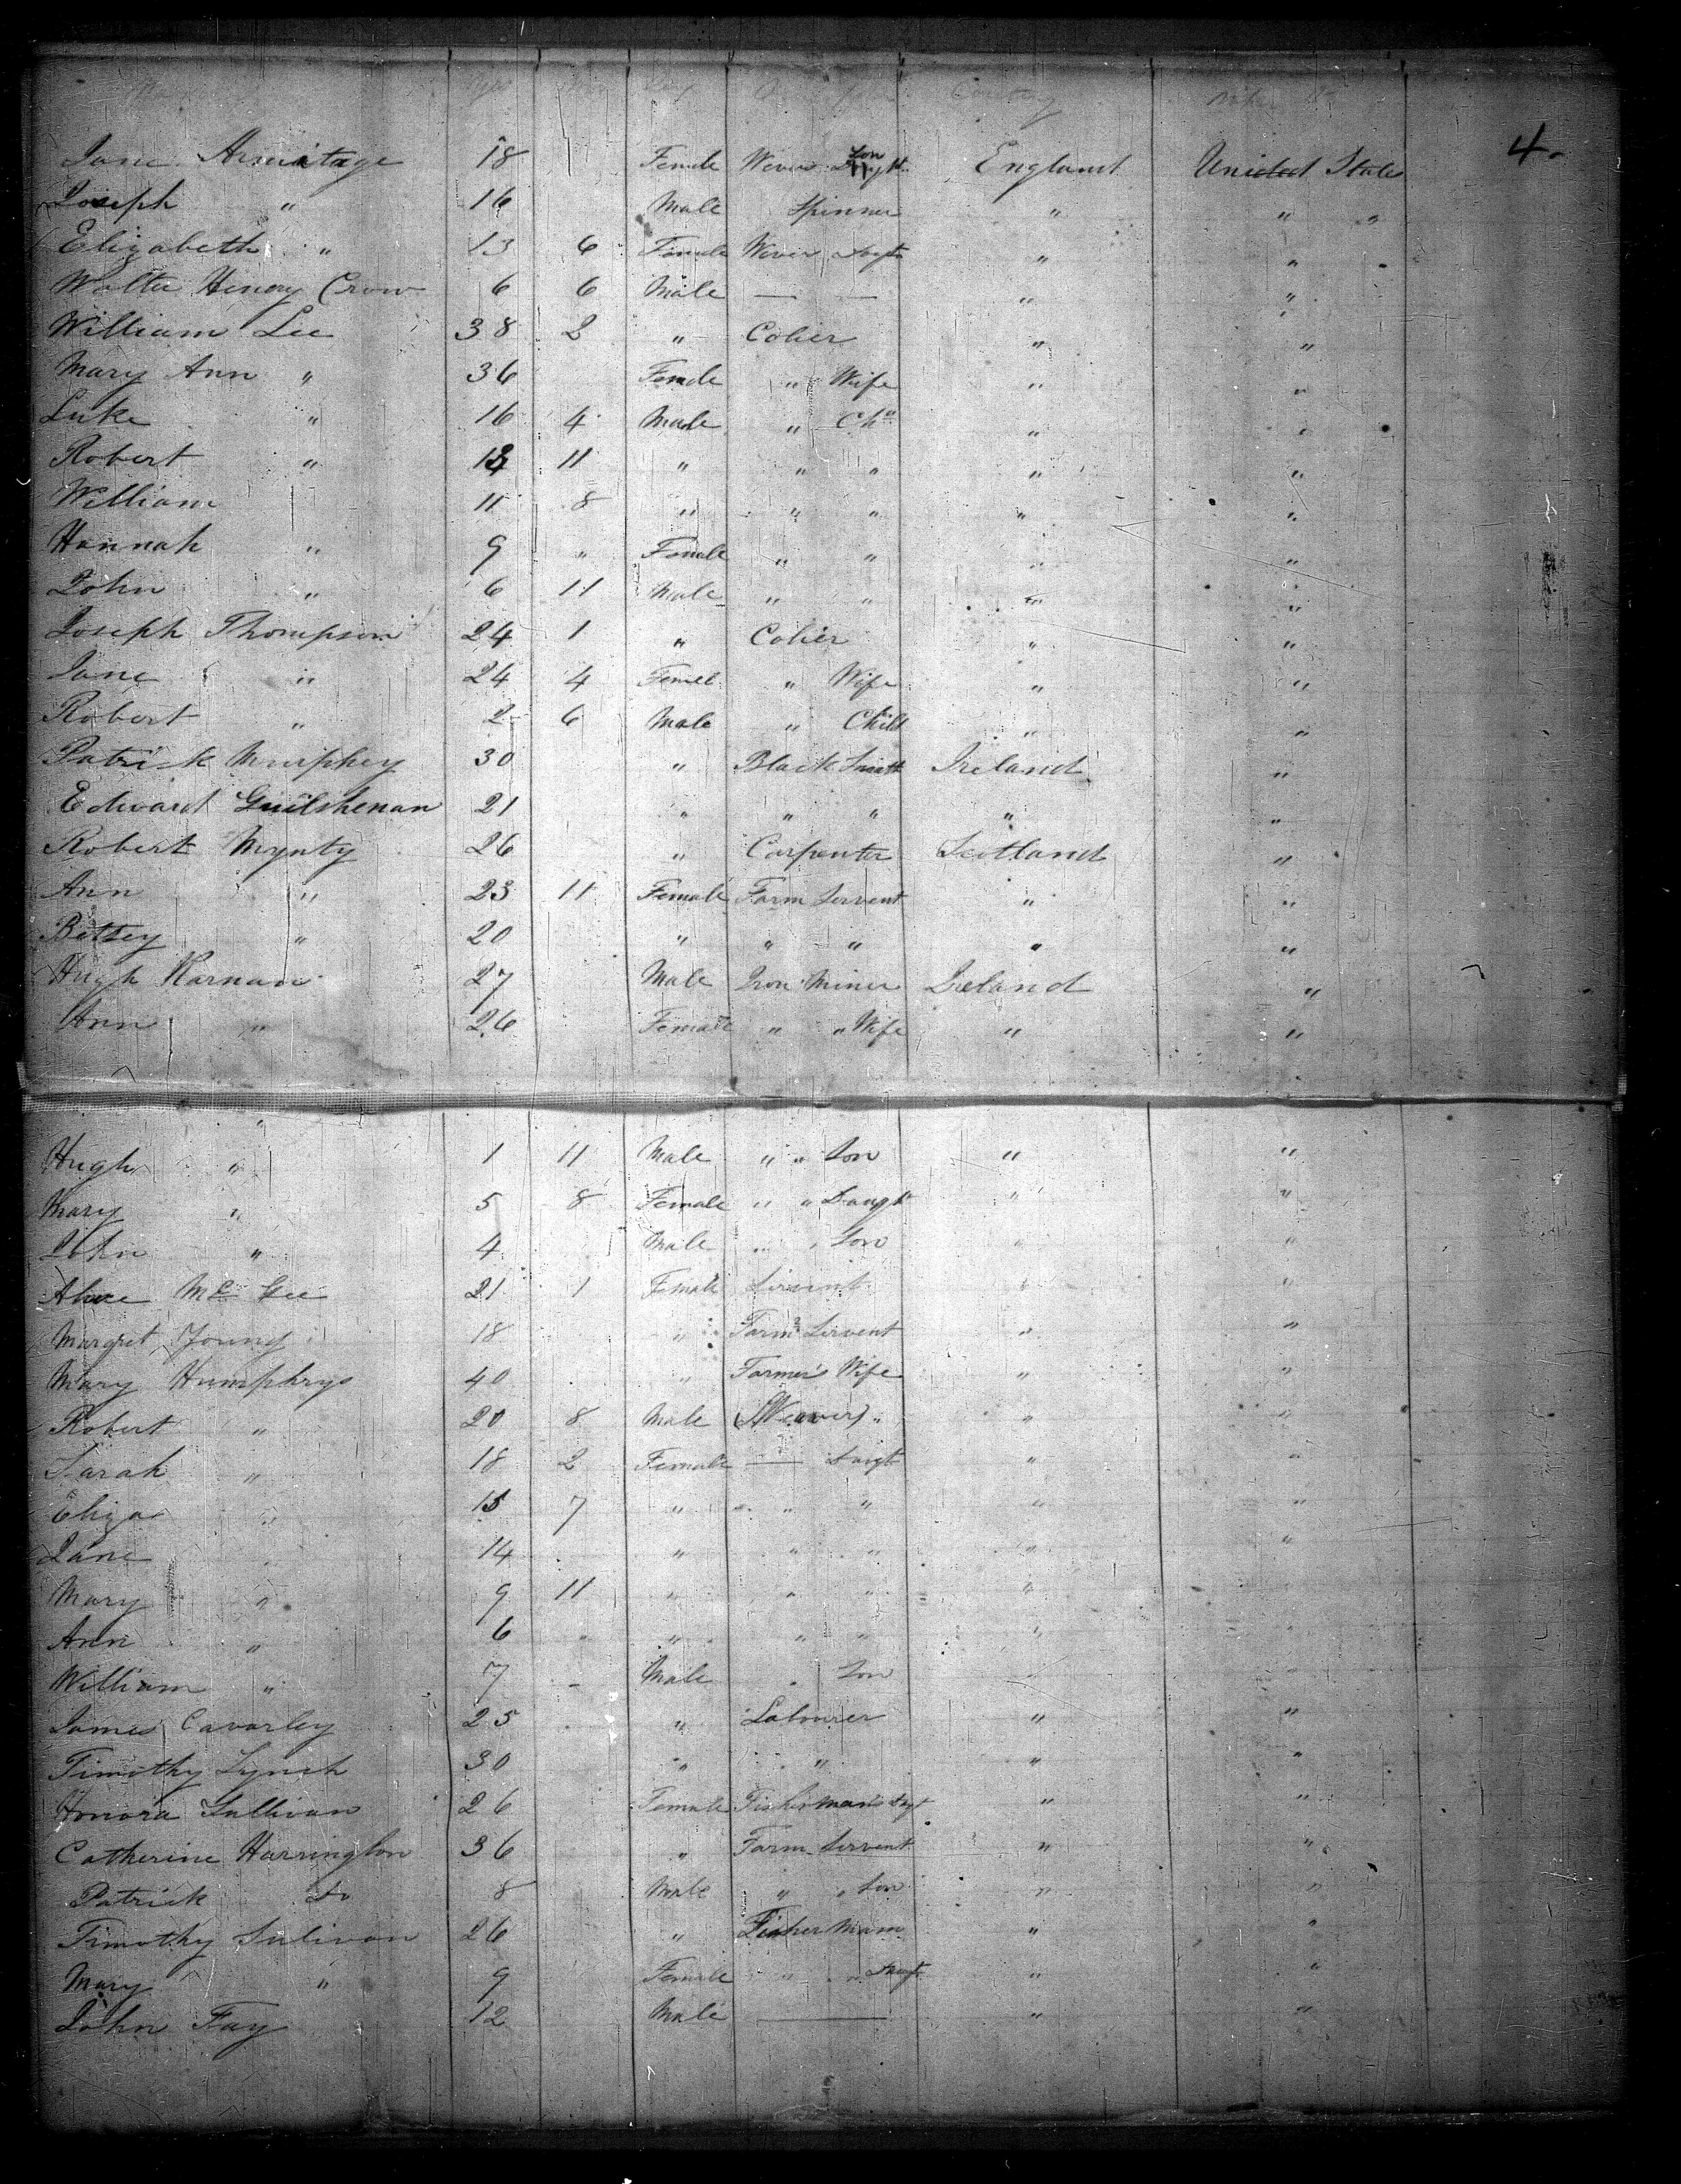 4.
Jane Armitage 18 Female Wever Son England United States
Joseph " 16 Male Spinner " " "
Elizabeth " 13 6 Female Wever Dagt " "
Walter Henery Crow 6 6 Male — — " "
William Lee 38 2 " Colier " "
Mary Ann " 36 Female " Wife " "
Luke " 16 4 Male " Chn " "
Robert " 13 11 " " " " "
William 11 8 " " " " "
Hannah " 9 " Female " " " "
John " 6 11 Male " " " "
Joseph Thompson 24 1 " Colier " "
Jane " 24 4 Femel " Wife " "
Robert " 2 6 Male " Child " "
Patrick Murphey 30 " Black Smith Ireland "
Edward Guilshenan 21 " " " " "
Robert Mynty 26 " Carpenter Scotland "
Ann " 23 11 Female Farm Servent " "
Betsey " 20 " " " " "
Hugh Karnan 27 Male Iron Miner Ireland "
Ann " 26 Female " " Wife " "
"
Hugh " 1 11 Male " " Son " "
Mary " 5 8 Female " " Daught " "
John " 4 Male " " Son " "
Alice Mc Gee 21 1 Female Servent " "
Margret Young 18 " Farm Servent " "
Mary Humphrys 40 " Farmer's Wife " "
Robert " 20 8 Male (Weaver) " " "
Sarah " 18 2 Female — Daigt " "
Eliza " 15 7 " " " " "
Jane " 14 " " " " "
Mary " 9 11 " " " "
Ann " 6 " " " " "
William " 7 – Male " Son " "
James Cavarley 25 " Labourer " "
Timothy Lynch 30 " " " "
Honora Sullivan 26 Female Fisherman's Dagt " "
Catherine Harrington 36 " Farm Servent " "
Patrick Do 8 Male " " Son " "
Timothy Sulivan 26 " Fisher Mam " "
Mary " 9 Female " " Daugt " "
John Fay 12 Male — " "